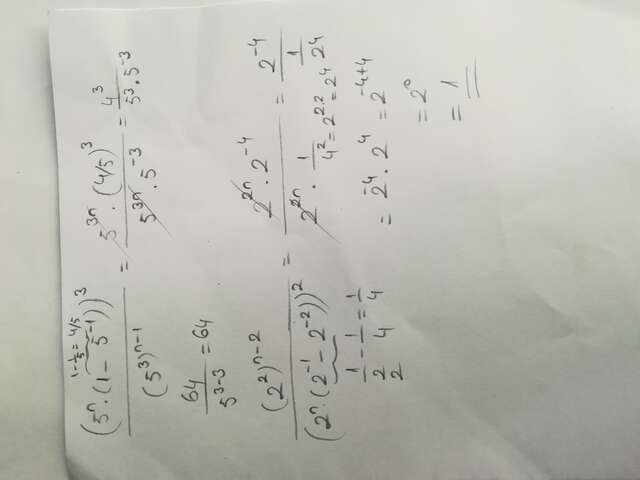 (5ⁿ · (1 - 5⁻¹))³ / (5³)ⁿ⁻¹ = 5³ⁿ · (4/5)³ / 5³ⁿ · 5⁻³ = 4³ / 5³ · 5⁻³
1 - 1/5 = 4/5
64 / 5³⁻³ = 64
(2²)ⁿ⁻² / (2ⁿ · (2⁻¹ - 2⁻²))² = 2²ⁿ · 2⁻⁴ / 2²ⁿ · 1/4² = 2⁻⁴ / 1/2⁴
4² = 2²·² = 2⁴
1/2 - 1/4 = 1/4
2
= 2⁻⁴ · 2⁴ = 2⁻⁴⁺⁴
= 2⁰
= 1